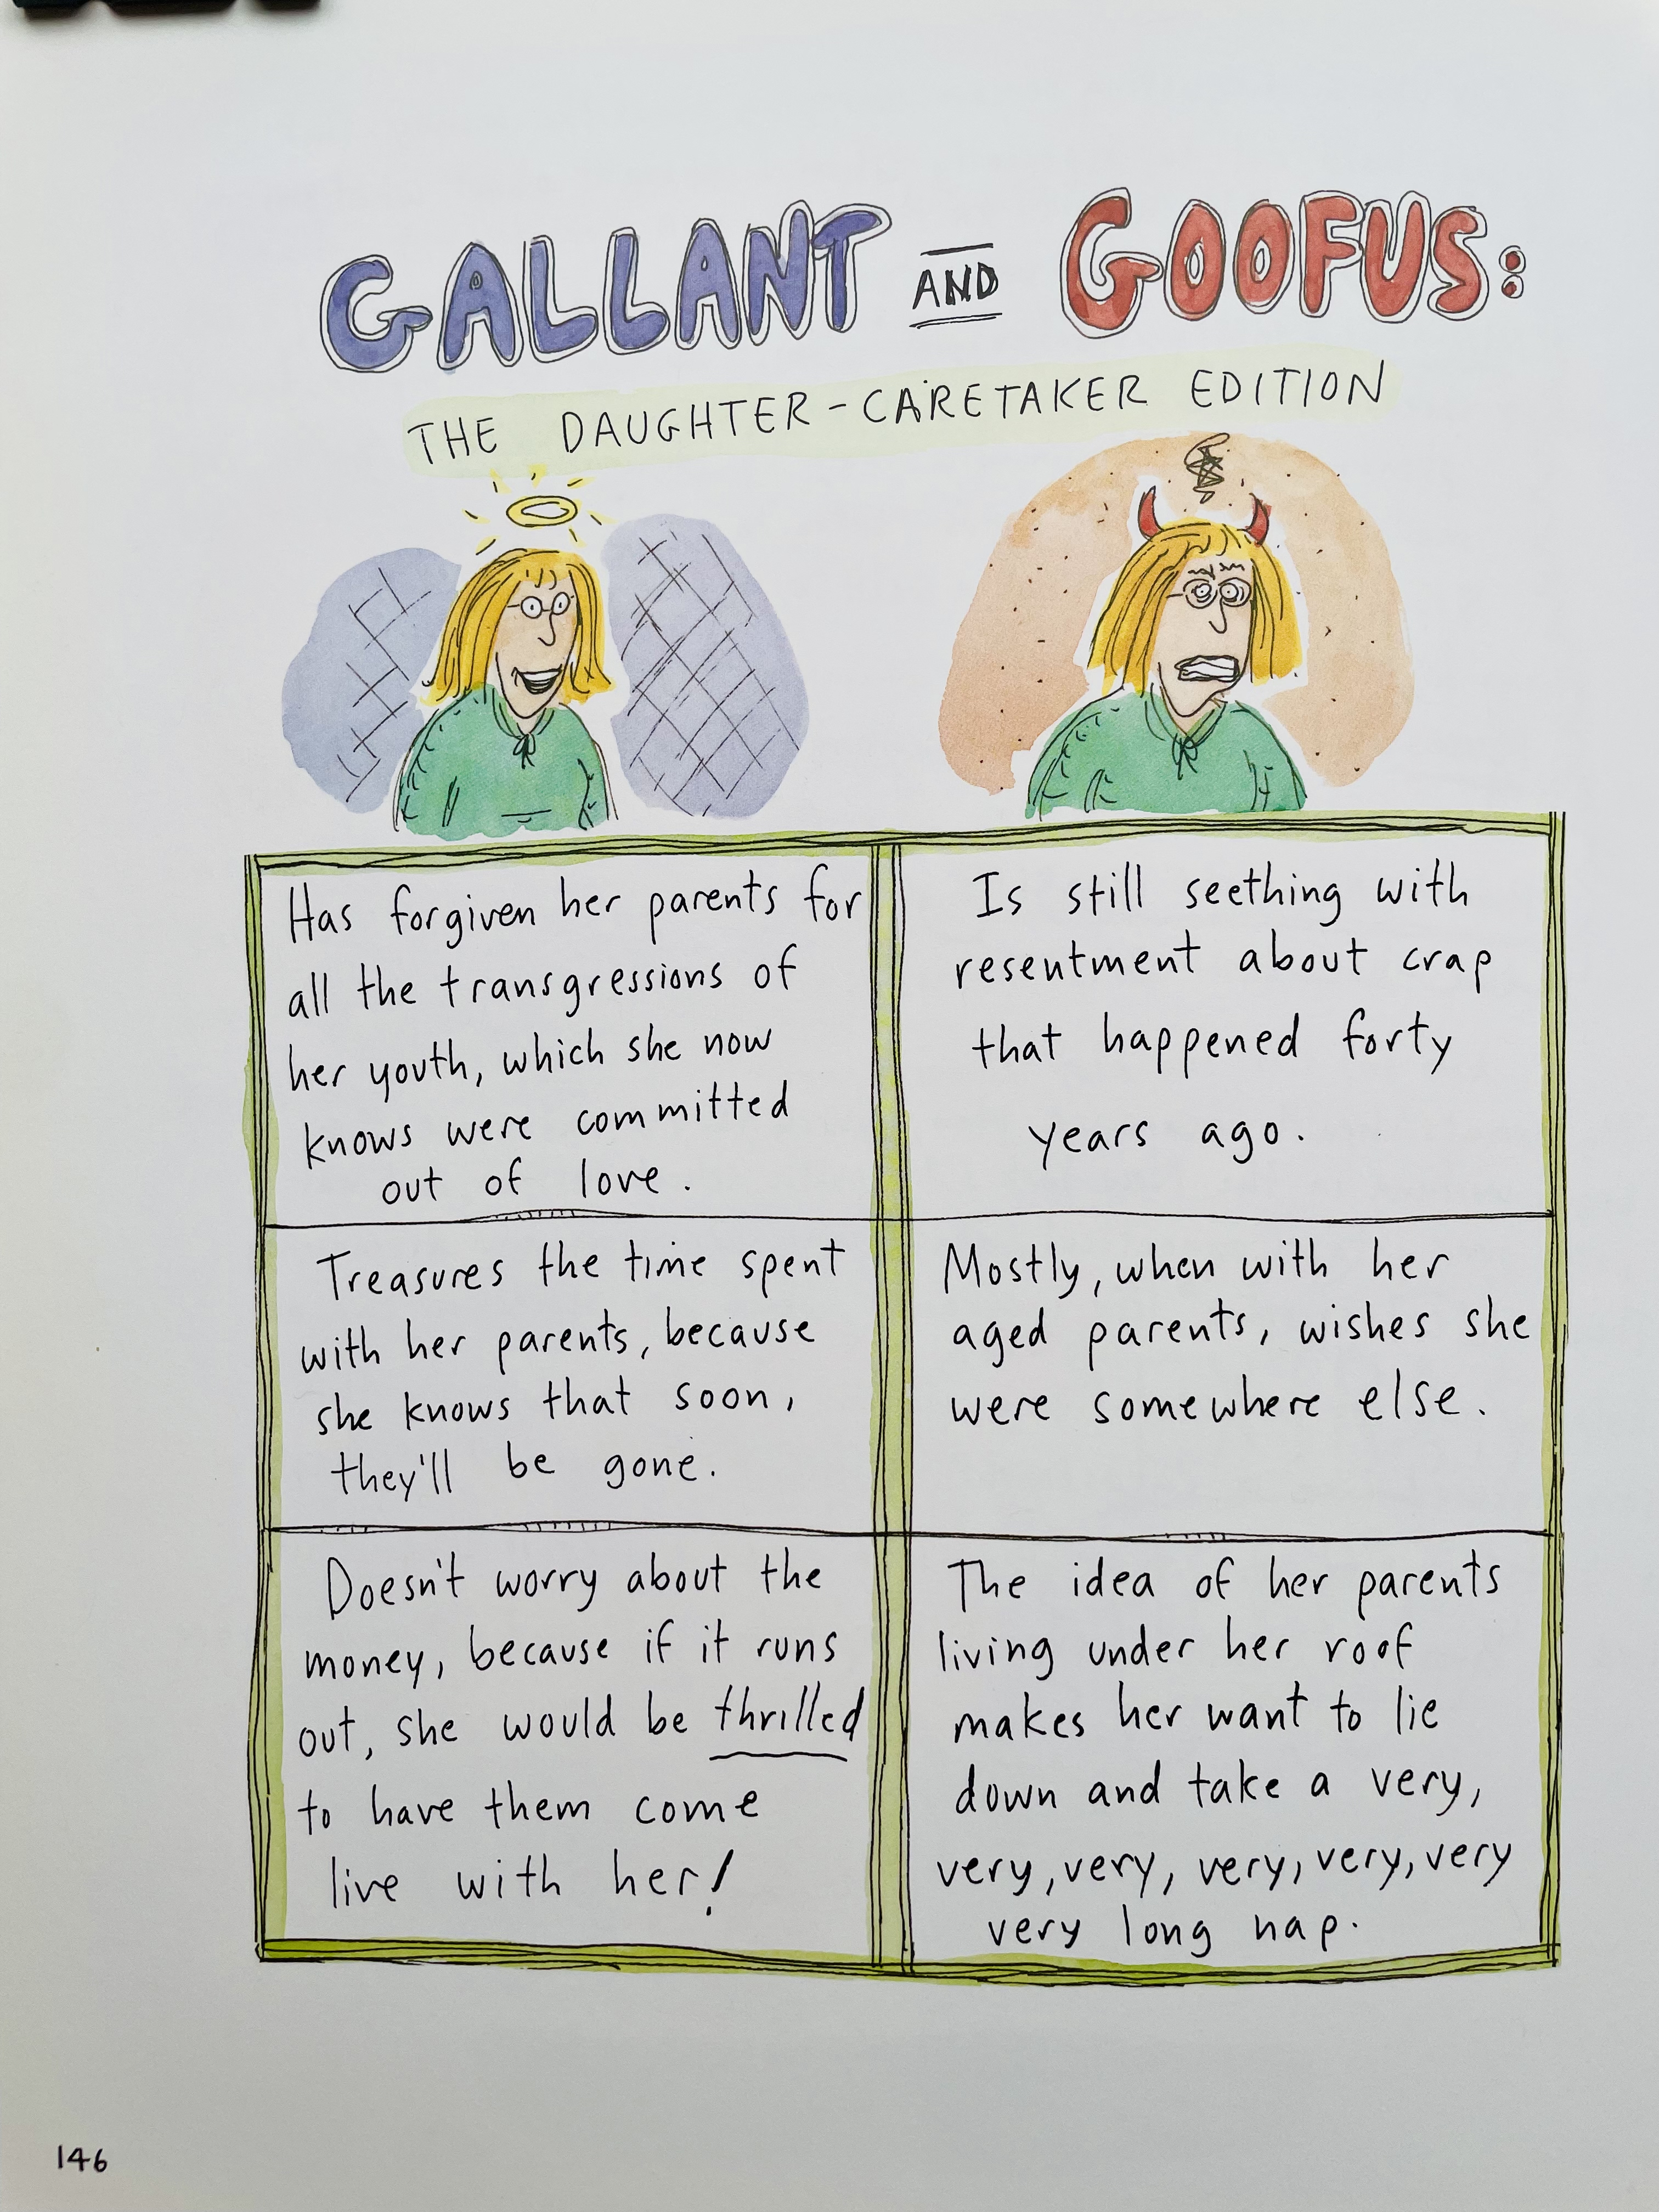 GALLANT AND GOOFUS:
THE DAUGHTER-CARETAKER EDITION
Has forgiven her parents for
all the transgressions of
her youth, which she now
knows were committed
out of love.
Is still seething with
resentment about crap
that happened forty
years ago.
Treasures the time spent
with her parents, because
she knows that soon,
they'll be gone.
Mostly, when with her
aged parents, wishes she
were somewhere else.
Doesn't worry about the
money, because if it runs
out, she would be thrilled
to have them come
live with her!
The idea of her parents
living under her roof
makes her want to lie
down and take a very,
very, very, very, very, very
very long nap.
146